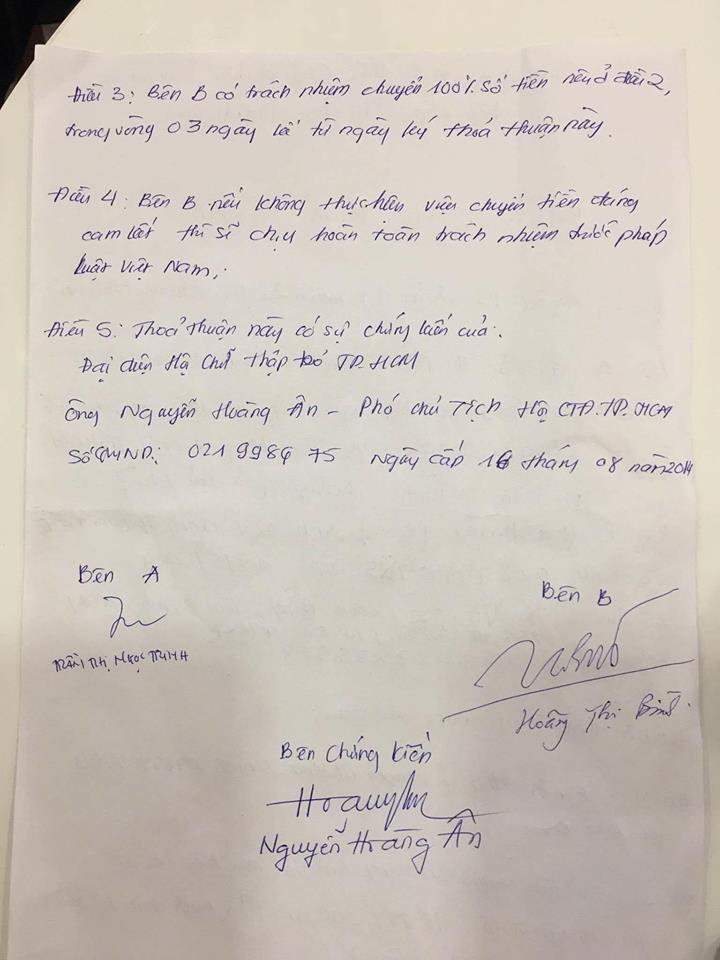 Điều 3: Bên B có trách nhiệm chuyển 100% số tiền nêu ở điều 2,
trong vòng 03 ngày kể từ ngày ký thoả thuận này.
Điều 4: Bên B nếu không thực hiện việc chuyển tiền đúng
cam kết thì sẽ chịu hoàn toàn trách nhiệm trước pháp
luật Việt Nam.
Điều 5: Thoả thuận này có sự chứng kiến của:
Đại diện Hội Chữ thập đỏ TP.HCM
Ông Nguyễn Hoàng Ân - Phó chủ Tịch Hội CTĐ.TP.HCM
Số CMND: Ngày cấp tháng 08 năm 2014
Bên A
Bên B
TRẦN THỊ NGỌC TRINH
Hoàng Thị
Bên chứng kiến
Nguyễn Hoàng Ân